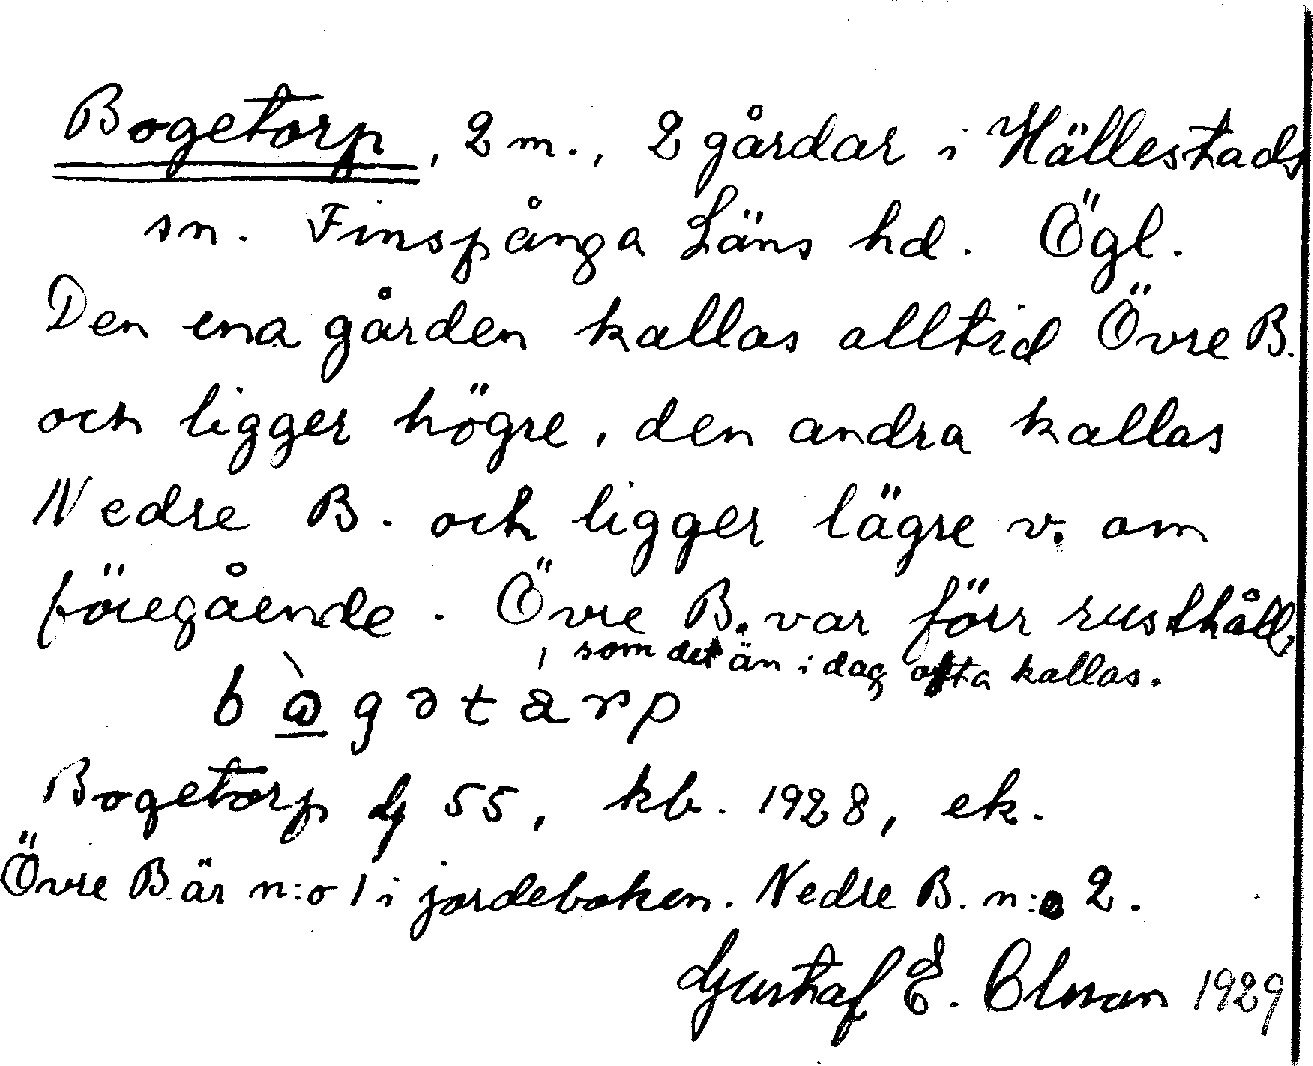 Bogetorp, 2 m., 2 gårdar i Hällestads
sn. Finspånga Läns hd. Ögl.
Den ena gården kallas alltid Övre B.
och ligger högre, den andra kallas
Nedre B. och ligger lägre v. om
föregående. Övre B. var förr rusthåll,
som det än i dag ofta kallas.
Bogetorp dj 55, kb. 1928, ek.
Övre B. är n:o 1 i jordeboken. Nedre B. n:o 2.
Gustaf E. Olsson 1929